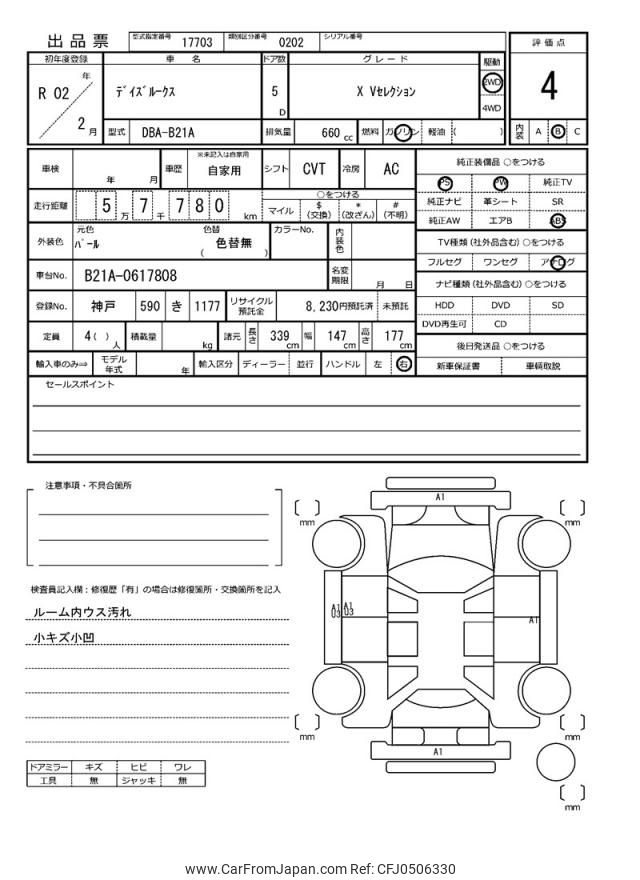 出品票
型式指定番号 17703 類別区分番号 0202 シリアル番号
評価点
4
内装 A B C
初年度登録 車名 ドア数 グレード 駆動
R 02 年 2 月
ﾃﾞｲｽﾞﾙｰｸｽ 5 D X Vセレクション 2WD 4WD
型式 DBA-B21A 排気量 660 cc 燃料 ガソリン 軽油 ( )
車検 年 月 車歴 ※未記入は自家用 自家用 シフト CVT 冷房 AC
走行距離 5 万 7 千 7 8 0 km ○をつける
マイル $ (交換) * (改ざん) # (不明)
外装色 元色 ﾊﾟｰﾙ 色替 色替無 ( ) カラーNo. 内装色
車台No. B21A-0617808 名変期限 月 日
登録No. 神戸 590 き 1177 リサイクル預託金 8,230円預託済 未預託
定員 4( ) 人 積載量 kg 諸元 長さ 339 cm 幅 147 cm 高さ 177 cm
輸入車のみ⇒ モデル年式 年 輸入区分 ディーラー 並行 ハンドル 左 右
純正装備品 ○をつける
PS PW 純正TV
純正ナビ 革シート SR
純正AW エアB ABS
TV種類 (社外品含む) ○をつける
フルセグ ワンセグ アナログ
ナビ種類 (社外品含む) ○をつける
HDD DVD SD
DVD再生可 CD
後日発送品 ○をつける
新車保証書 車輌取説
セールスポイント
注意事項・不具合箇所
検査員記入欄：修復歴「有」の場合は修復箇所・交換箇所を記入
ルーム内ウス汚れ
小キズ小凹
ドアミラー キズ ヒビ ワレ
工具 無 ジャッキ 無
A1
mm
mm
A1
U3
A1
U3
A1
mm
mm
A1
mm
www.CarFromJapan.com Ref: CFJ0506330